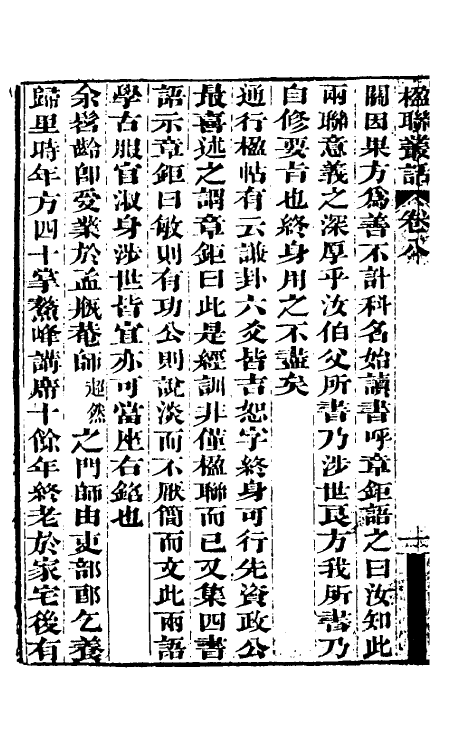 楹聯叢話 卷八 十一
關因果方為善不計科名始讀書呼章鉅語之曰汝知此
兩聯意義之深厚乎汝伯父所書乃涉世良方我所書乃
自修要旨也終身用之不盡矣
通行楹帖有云謙卦六爻皆吉恕字終身可行先資政公
最喜述之謂章鉅曰此是經訓非僅楹聯而已又集四書
語示章鉅曰敏則有功公則說淡而不厭簡而文此兩語
學古服官淑身涉世皆宜亦可當座右銘也
余髫齡即受業於孟瓶菴師超然之門師由吏部郎乞養
歸里時年方四十掌鰲峰講席十餘年終老於家宅後有